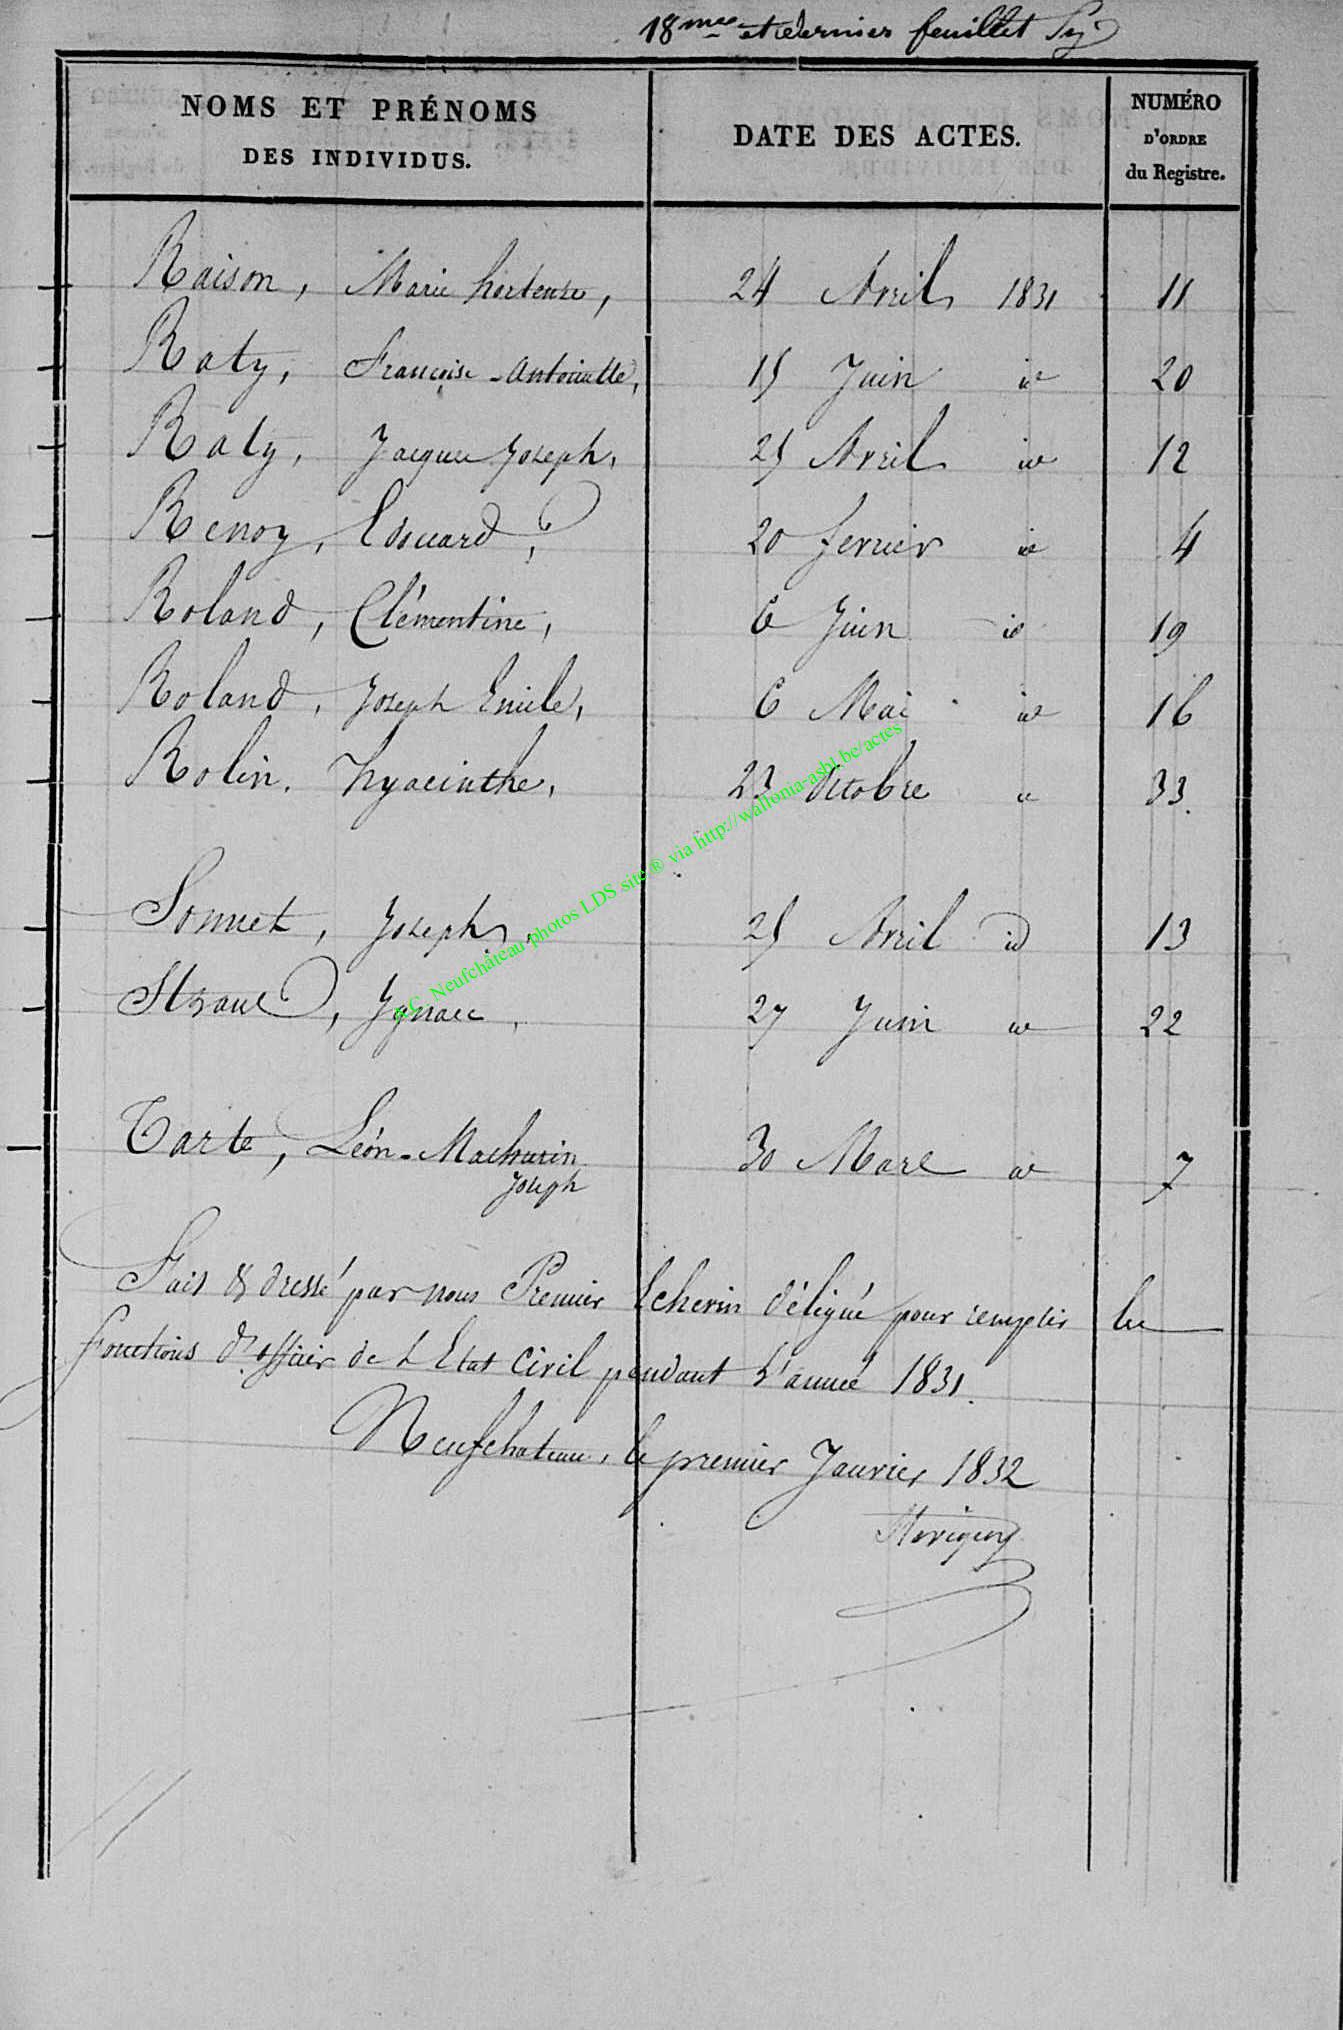 18me et dernier feuillet
NOMS ET PRÉNOMS
DES INDIVIDUS.
DATE DES ACTES.
NUMÉRO
D'ORDRE
du Registre.
Raison, Marie hortense, 24 Avril 1831 11
Raty, Françoise-Antoinette, 15 Juin id 20
Raty, Jacques Joseph, 25 Avril id 12
Renoy, Edouard, 20 fevrier id 4
Roland, Clémentine, 6 Juin id 19
Roland, Joseph Emile, 6 Mai id 16
Rolin, hyacinthe, 23 Octobre id 33
Sonnet, Joseph, 25 Avril id 13
Ignace, 27 Juin id 22
Tarte, Léon-Mathurin 30 Mars id 7
Joseph
Fait & dressé par nous Premier Echevin délégué pour remplir les
fonctions d'officier de L'Etat Civil pendant L'année 1831.
Neufchateau, le premier Janvier 1832
EC Neufchâteau photos LDS site ® via http://wallonia-asbl.be/actes